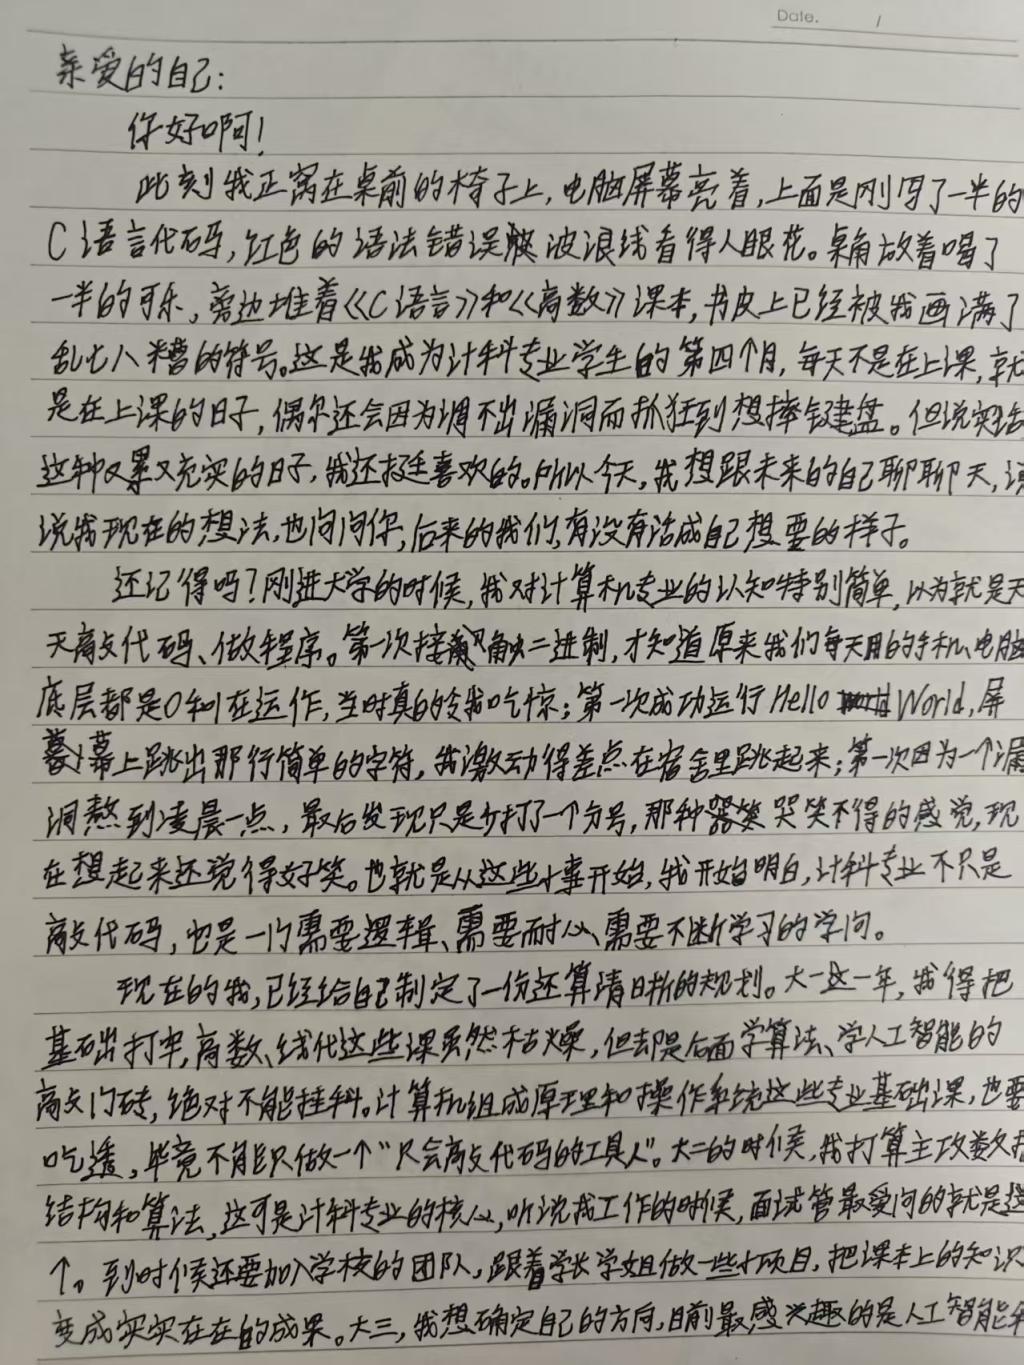 Date. /
亲爱的自己:
你好啊!
此刻我正窝在桌前的椅子上,电脑屏幕亮着,上面是刚写了一半的
C语言代码,红色的语法错误波浪线看得人眼花。桌角放着喝了
一半的可乐,旁边堆着《C语言》和《高数》课本,书皮上已经被我画满了
乱七八糟的符号。这是我成为计科专业学生的第四个月,每天不是在上课,就
是在上课的日子,偶尔还会因为调不出漏洞而抓狂到想摔键盘。但说实话
这种又累又充实的日子,我还挺喜欢的。所以今天,我想跟未来的自己聊聊天,
说我现在的想法,也问问你,后来的我们,有没有活成自己想要的样子。
还记得吗?刚进大学的时候,我对计算机专业的认知特别简单,以为就是天
天敲代码、做程序。第一次接触二进制,才知道原来我们每天用的手机、电脑
底层都是0和1在运作,当时真的令我吃惊;第一次成功运行Hello World,屏
幕上跳出那行简单的字符,我激动得差点在宿舍里跳起来;第一次因为一个漏
洞熬到凌晨一点,最后发现只是少打了一个分号,那种哭笑不得的感觉,现
在想起来还觉得好笑。也就是从这些小事开始,我开始明白,计科专业不只是
敲代码,也是一门需要逻辑、需要耐心、需要不断学习的学问。
现在的我,已经给自己制定了一份还算清晰的规划。大一这一年,我得把
基础打牢,高数、线代这些课虽然枯燥,但却是后面学算法、学人工智能的
敲门砖,绝对不能挂科。计算机组成原理和操作系统这些专业基础课,也要
吃透,毕竟不能只做一个“只会敲代码的工具人”。大二的时候,我打算主攻数据
结构和算法,这可是计科专业的核心,听说找工作的时候,面试管最爱问的就是这
个。到时候还要加入学校的团队,跟着学长学姐做一些小项目,把课本上的知识
变成实实在在的成果。大三,我想确定自己的方向,目前最感兴趣的是人工智能和